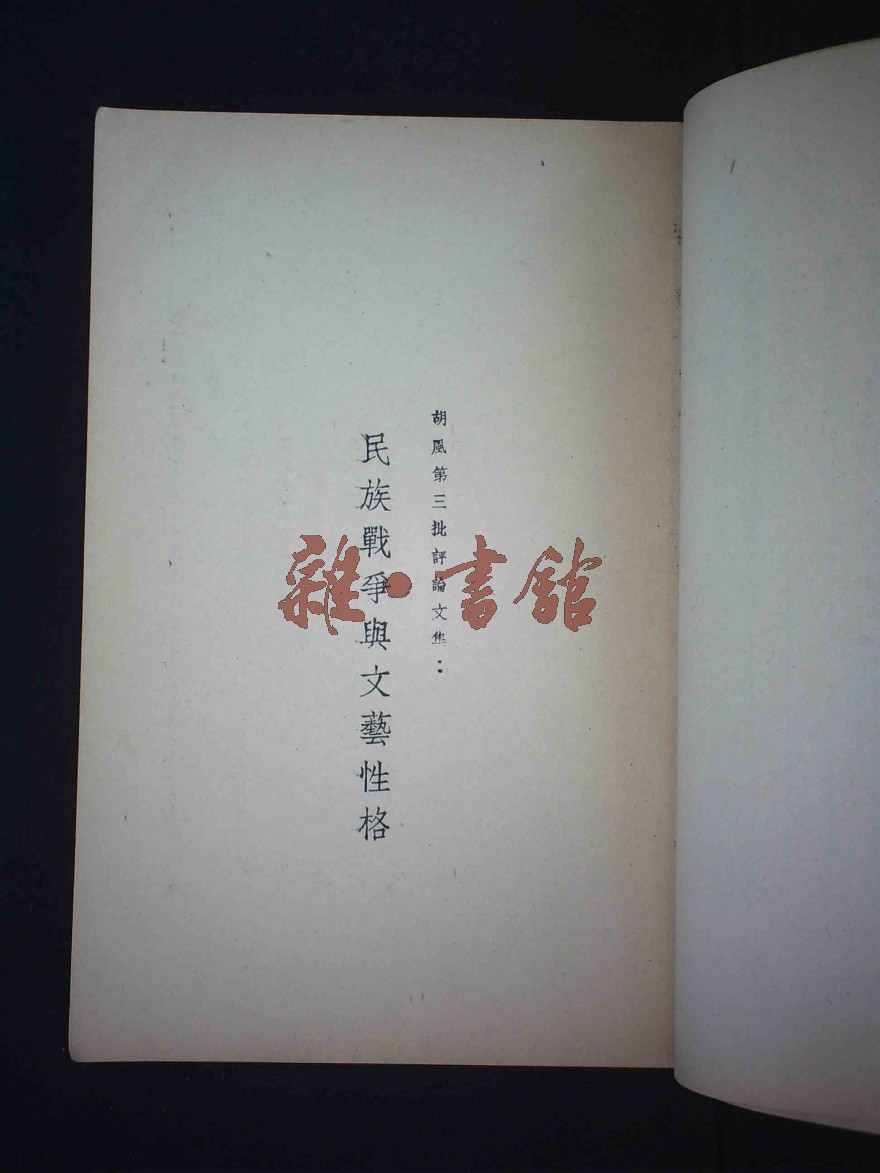 胡風第三批評論文集：
民族戰爭與文藝性格
雜·書館